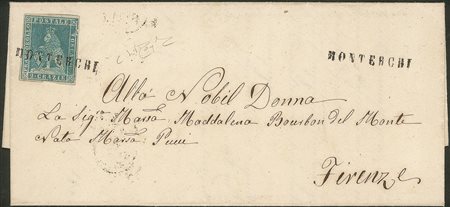 POSTALE
2 CRAZIE
MONTERCHI
MONTERCHI
Alla Nobil Donna
La Sig.ra Marsa Maddalena Bourbon del Monte
Nata Marsa Pucci
Firenze